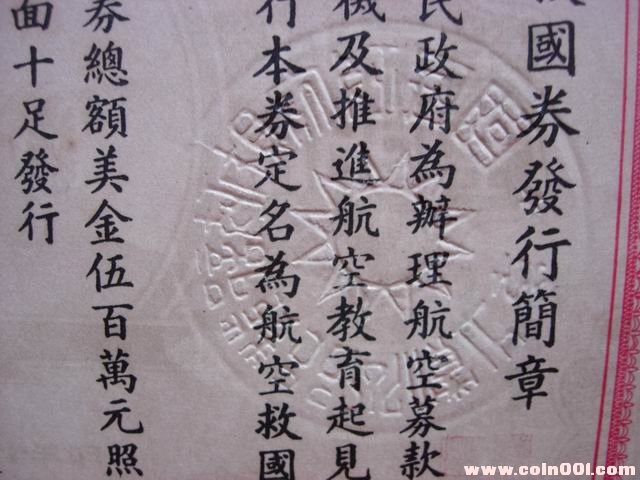 國券發行簡章
民政府為辦理航空募款
機及推進航空教育起見
行本券定名為航空救國
券總額美金伍百萬元照
面十足發行
www.coin001.com